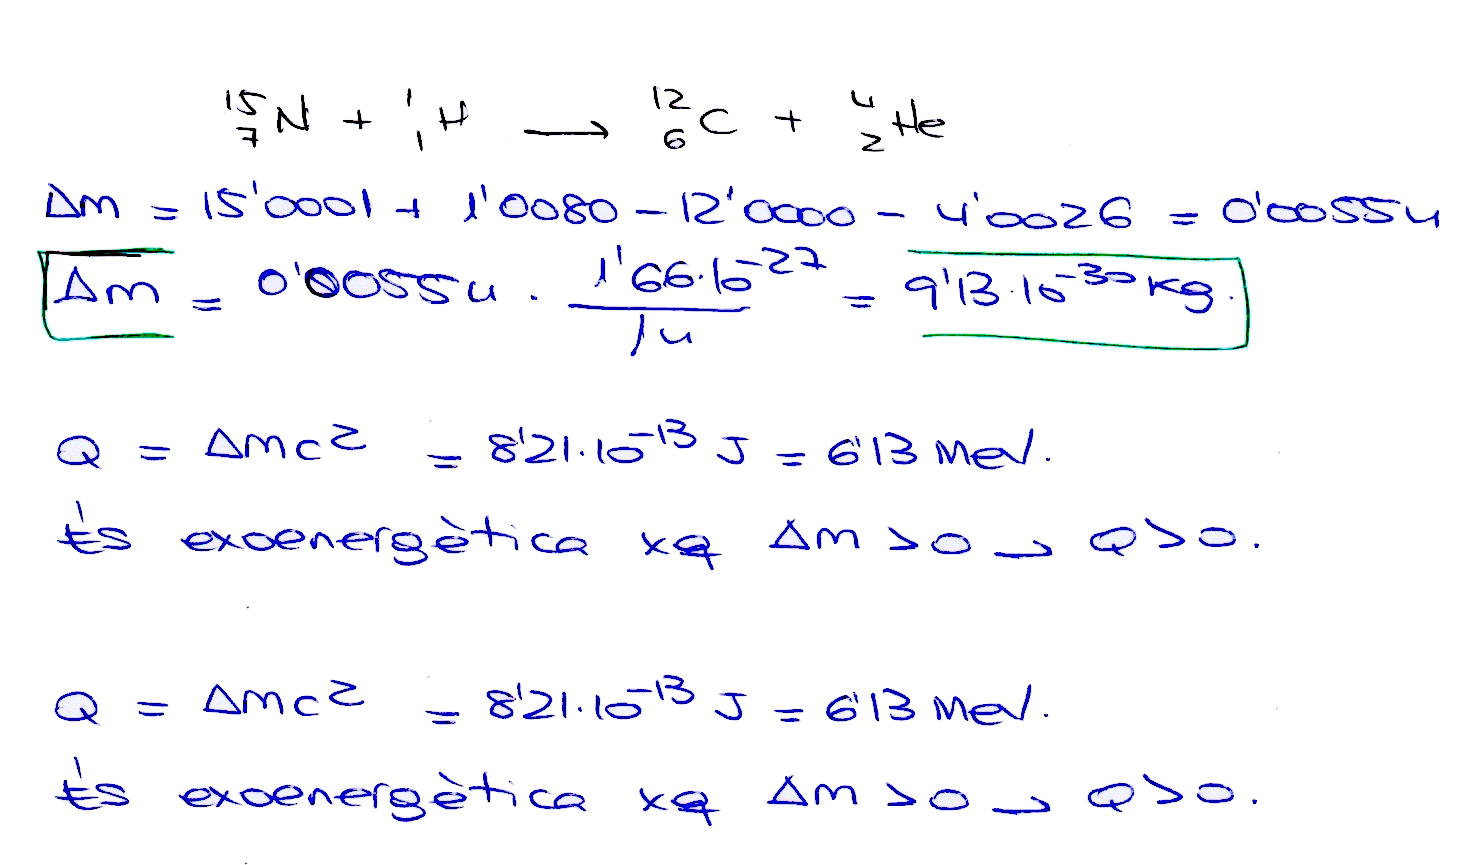 ¹⁵₇N + ¹₁H → ¹²₆C + ⁴₂He
Δm = 15'0001 + 1'0080 - 12'0000 - 4'0026 = 0'0055u
Δm = 0'0055u · 1'66·10⁻²⁷/1u = 9'13·10⁻³⁰ kg.
Q = Δmc² = 8'21·10⁻¹³ J = 6'13 MeV.
És exoenergètica xq Δm > 0 → Q > 0.
Q = Δmc² = 8'21·10⁻¹³ J = 6'13 MeV.
És exoenergètica xq Δm > 0 → Q > 0.